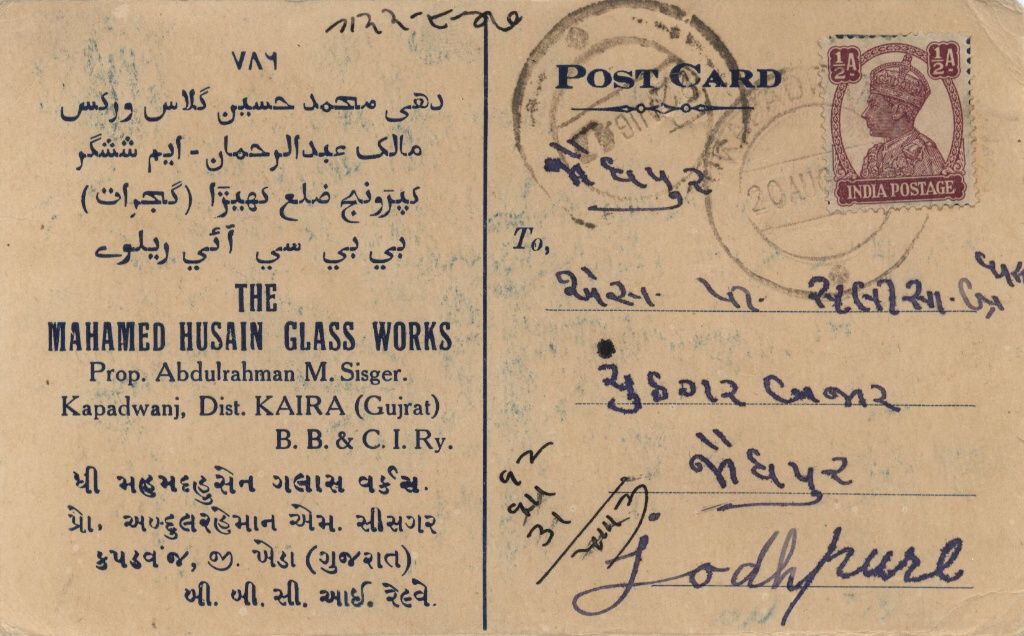 ۷۸۶
دهی محمد حسین گلاس ورکس
مالک عبدالرحمان - ایم ششگر
کپڑونج ضلع کھیڑا (گجرات)
بي بي سي آئي ريلوے
THE
MAHAMED HUSAIN GLASS WORKS
Prop. Abdulrahman M. Sisger.
Kapadwanj, Dist. KAIRA (Gujrat)
B. B. & C. I. Ry.
ધી મહમદહુસેન ગલાસ વર્કસ.
પ્રો. અબ્દુલરહેમાન એમ. સીસગર
કપડવંજ, જી. ખેડા (ગુજરાત)
બી. બી. સી. આઈ. રેલ્વે.
POST CARD
½A ½A
INDIA POSTAGE
20 AUG
જોધપુર
To,
એસ. પી.
બજાર
જોધપુર
Jodhpure